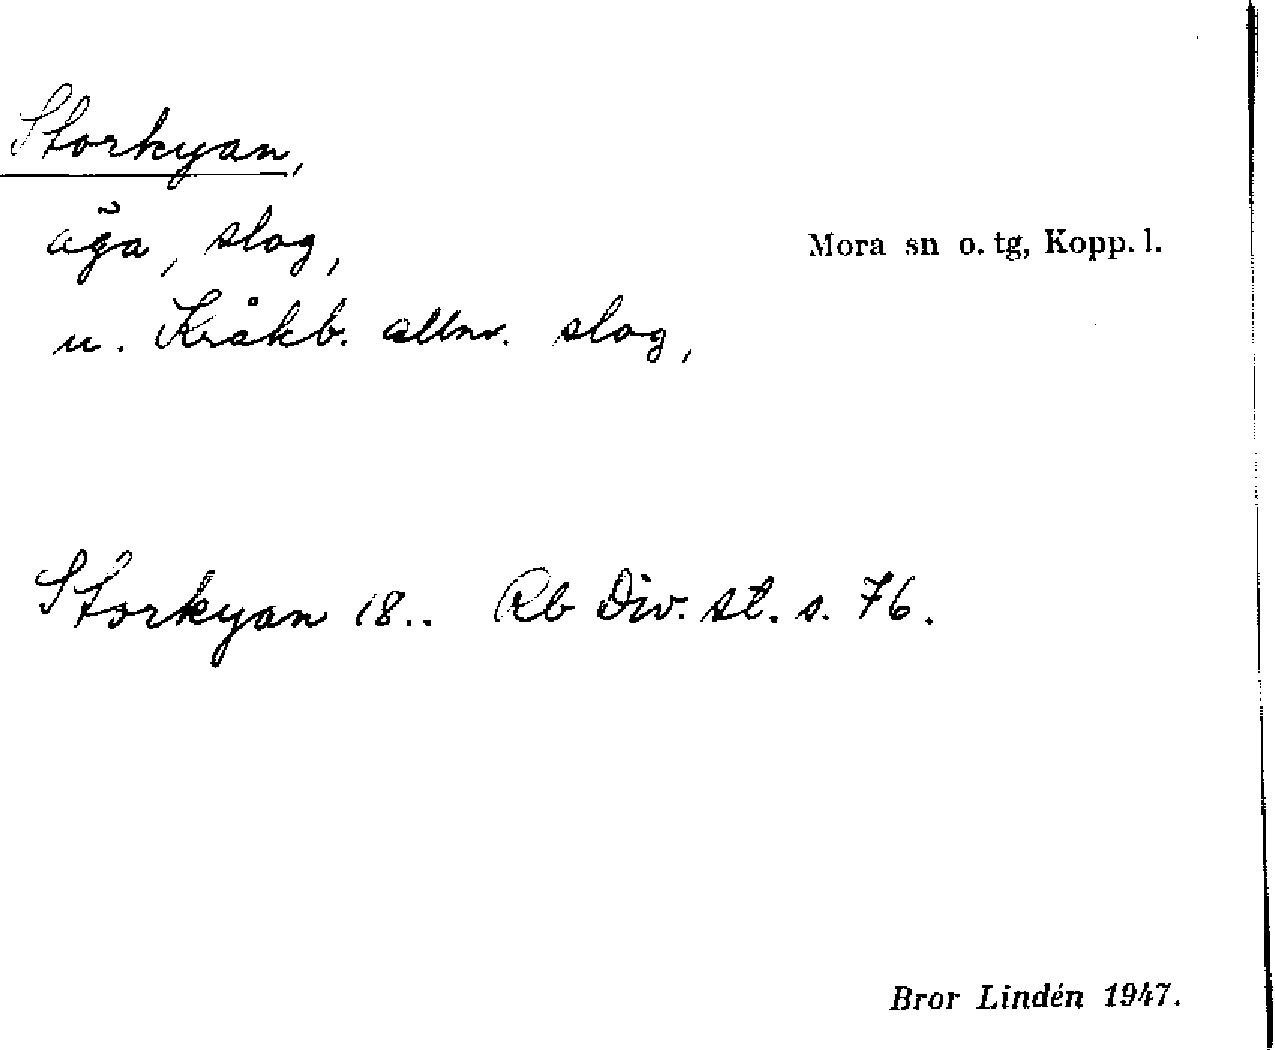 Storkyan,
äga, slog,
Mora sn o. tg, Kopp. l.
u. Kråkb. allmv. slog,
Storkyan 18.. Rb Div. st. s. 76.
Bror Lindén 1947.